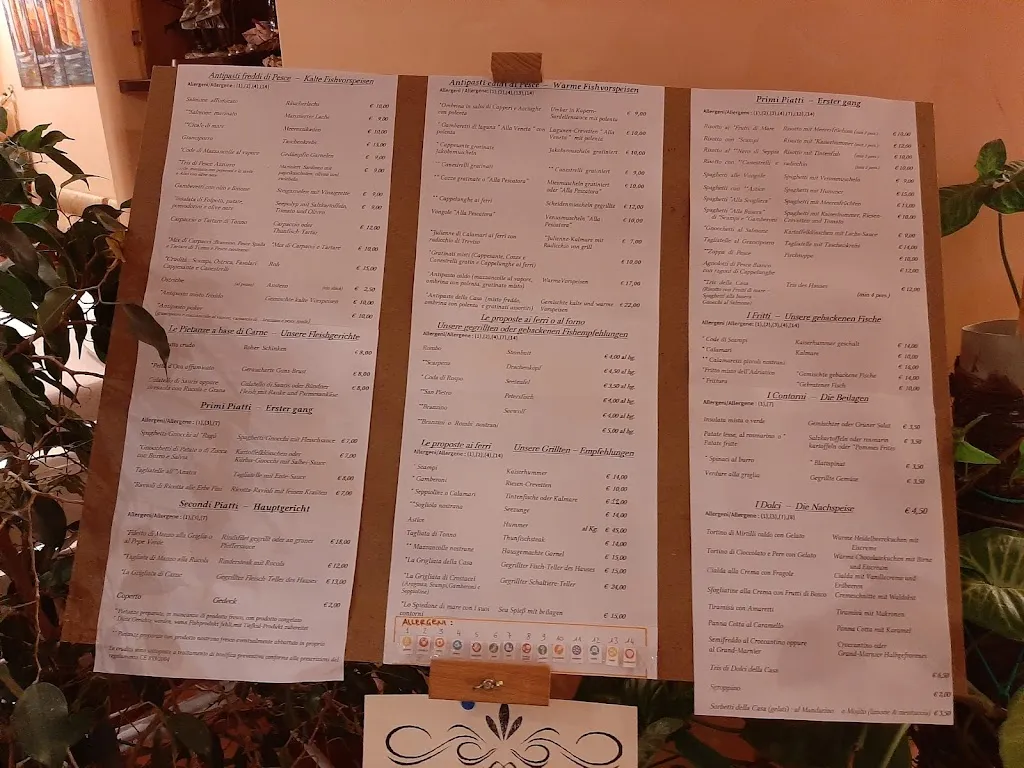 Antipasti freddi di Pesce — Kalte Fishvorspeisen
Allergeni/Allergene: (1),(2),(4),(14)
Salmone affumicato Räucherlachs € 10,00
*Salmone marinato Marinierter Lachs € 9,00
**Cicale di mare Meereszikaden € 10,00
Granceporro Taschenkrebs € 13,00
*Code di Mazzancolle al vapore € 9,00
*Tris di Pesce Azzurro € 9,00
Gamberetti con olio e limone € 9,00
*Insalata di Polpetti, patate, € 9,00
pomodorini e olive nere Tomaten und Oliven
Carpaccio e Tartare di Tonno Carpaccio oder € 12,00
Thunfisch Tartar
*Mix di Carpacci € 10,00
*Crudità: Scampi, Ostrica, Fasolari Roh € 15,00
Cappesante e Canestrelli
Ostriche Austern € 2,50
*Antipasto misto freddo Gemischte kalte Vorspeisen € 10,00
*Antipasto poker € 10,00
Le Pietanze a base di Carne — Unsere Fleishgerichte
crudo Roher Schinken € 8,00
*Petto d'Oca affumicato Geräucherte Gans-Brust € 8,00
€ 8,00
Primi Piatti — Erster gang
Allergeni/Allergene : (1),(3),(7)
Spaghetti/Gnocchi al "Ragù Spaghetti/Gnocchi mit Fleischsauce € 7,00
*Gnocchetti di Patate o di Zucca Kartoffelklösschen oder € 7,00
con Burro e Salvia Kürbis-Gnocchi mit Salbei-Sauce
Tagliatelle all'"Anatra Tagliatelle mit Ente-Sauce € 8,00
*Ravioli di Ricotta alle Erbe Fini Ricotta-Ravioli mit feinen Kräutern € 7,00
Secondi Piatti — Hauptgericht
Allergeni/Allergene : (1),(3),(7)
*Filetto di Manzo alla Griglia o Rindsfilet gegrillt oder an grüner € 18,00
al Pepe Verde Pfeffersauce
*Tagliata di Manzo alla Rucola Rindersteak mit Rucola € 12,00
*La Grigliata di Carne Gegrillter Fleisch-Teller des Hauses € 13,00
Coperto Gedeck € 2,00
*Pietanze preparate, in mancanza di prodotto fresco, con prodotto congelato
**Pietanze preparate con prodotto nostrano fresco eventualmente abbattuto in proprio
Antipasti caldi di Pesce — Warme Fishvorspeisen
Allergeni/Allergene: (1),(2),(4),(9),(14)
*Ombrina in salsa di Capperi e Acciughe Umber in Kapern- € 9,00
con polenta Sardellensauce mit polenta
*Gamberetti di laguna "Alla Veneta" con Lagunen-Crevetten "Alla € 10,00
polenta Veneta" mit polenta
* Cappesante gratinate Jakobsmuscheln gratiniert € 10,00
* Canestrelli gratinati € 9,00
** Cozze gratinate o "Alla Pescatora" Miesmuscheln gratiniert € 10,00
oder "Alla Pescatora"
** Cappelunghe ai ferri Scheidenmuscheln gegrillte € 12,00
Vongole "Alla Pescatora" Venusmuscheln "Alla € 10,00
Pescatora"
*Julienne di Calamari ai ferri con *Julienne-Kalmare mit € 7,00
radicchio di Treviso Radicchio von grill
*Gratinati misti (Cappesante, Cozze e € 10,00
Canestrelli gratin e Cappelunghe ai ferri)
*Antipasto caldo (mazzancolle al vapore, Warme Vorspeisen € 17,00
ombrina con polenta, gratinati misto)
*Antipasto della Casa (misto freddo, Gemischte kalte und warme € 22,00
ombrina con polenta e gratinati assortiti) Vorspeisen
Le proposte ai ferri o al forno
Unsere gegrillten oder gebackenen Fishempfehlungen
Allergeni/Allergene: (1),(3),(4),(14)
Rombo Steinbutt € 4,00 al hg.
*Scarpena Drachenkopf € 4,50 al hg.
* Coda di Rospo Seeteufel € 3,50 al hg.
*San Pietro Petersfisch € 4,00 al hg.
*Branzino Seewolf € 4,00 al hg.
*Branzino o Rombi nostrani € 5,00 al hg.
Le proposte ai ferri — Unsere Grillten — Empfehlungen
Allergeni/Allergene: (1),(2),(4),(14)
* Scampi Kaiserhummer € 14,00
* Gamberoni Riesen-Crevetten € 10,00
* Seppioline o Calamari Tintenfische oder Kalmare € 12,00
**Sogliola nostrana Seezunge € 14,00
Astice Hummer al Kg. € 45,00
Tagliata di Tonno Thunfischsteak € 14,00
** Mazzancolle nostrane Hausgemachte Garnel € 15,00
*La Grigliata della Casa Gegrillter Fisch-Teller des Hauses € 15,00
*La Grigliata di Crostacei Gegrillter Schaltiere-Teller € 24,00
(Aragosta, Scampi,Gamberoni e
Seppioline)
*Lo Spiedone di mare con i suoi Sea Spieß mit beilagen € 15,00
contorni
ALLERGENI :
1 2 3 4 5 6 7 8 9 10 11 12 13 14
Primi Piatti — Erster gang
Allergeni/Allergene: (1),(2),(3),(4),(7),(12),(14)
Risotto ai *Frutti di Mare Risotto mit Meeresfrüchten (min 2 pers.) € 10,00
Risotto con *Scampi Risotto mit *Kaiserhummer (min 2 pers.) € 12,00
Risotto al *Nero di Seppia Risotto mit Tintenfish € 10,00
Risotto con *Gamberetti e radicchio € 10,00
Spaghetti alle Vongole Spaghetti mit Venusmuscheln € 9,00
Spaghetti con *Astice Spaghetti mit Hummer € 15,00
Spaghetti "Allo Scoglio" Spaghetti mit Meeresfrüchten € 13,00
Spaghetti "Alla Busara" Spaghetti mit Kaiserhummer, Riesen- € 10,00
di *Scampi e *Gamberoni Crevetten und Tomato
*Gnocchetti al Salmone Kartoffelklösschen mit Lachs-Sauce € 9,00
Tagliatelle al Granceporro Tagliatelle mit Taschenkrebs € 14,00
**Zuppa di Pesce Fischsuppe € 10,00
Agnolotti di Pesce Bianco € 12,00
con ragout di Cappelunghe
*Tris della Casa Tris des Hauses (min 4 pers.) € 12,00
(Risotto con Frutti di mare
Spaghetti alla busera
Gnocchi al Salmone)
I Fritti — Unsere gebackenen Fische
Allergeni/Allergene : (1),(2),(3),(4),(14)
* Code di Scampi Kaiserhummer geschält € 14,00
* Calamari Kalmare € 10,00
** Calamaretti piccoli nostrani € 16,00
*Fritto misto dell'Adriatico *Gemischte gebackene Fische € 14,00
*Frittura *Gebratener Fisch € 10,00
I Contorni — Die Beilagen
Allergeni/Allergene: (1),(7)
Insalata mista o verde Gemischter oder Grüner Salat € 3,50
Patate lesse, al rosmarino o * Salzkartoffeln oder rosmarin
Patate fritte kartoffeln oder *Pommes Frites
* Spinaci al burro * Blattspinat € 3,50
Verdure alla griglia Gegrillte Gemüse € 3,50
I Dolci — Die Nachspeise € 4,50
Allergeni/Allergene : (1),(3),(7),(8)
Tortino di Mirtilli caldo con Gelato Warme Heidelbeerekuchen mit
Eiscreme
Tortino di Cioccolato e Pere con Gelato Warme Chocolatekuchen mit Birne
und Eiscream
Cialda alla Crema con Fragole Cialda mit Vanillecreme und
Erdbeeren
Sfogliatine alla Crema con Frutti di Bosco Cremeschnitte mit Waldobst
Tiramisù con Amaretti Tiramisù mit Makronen
Panna Cotta al Caramello Panna Cotta mit Karamel
Semifreddo al Croccantino oppure Croccantino oder
al Grand-Marnier Grand-Marnier Halbgefrorenes
Tris di Dolci della Casa € 6,50
Sgroppino € 2,00
Sorbetti della Casa (gelati) : al Mandarino o Mojito (limone & mentuccia) € 3,50